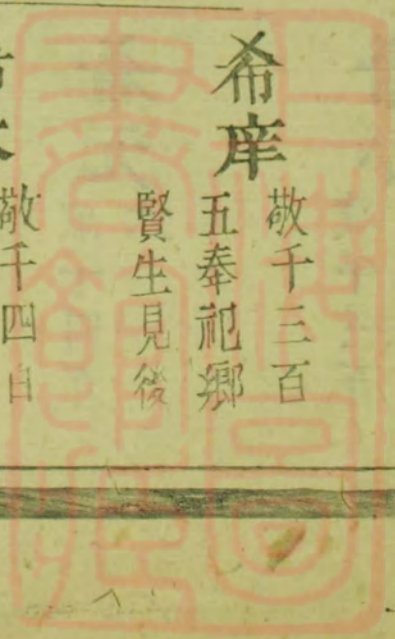 希庠
敬千三百
五奉祀鄉
賢生見後
敬千四百